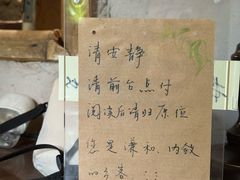 请安静
请前台点付
阅读后请归原位
您是谦和、内敛